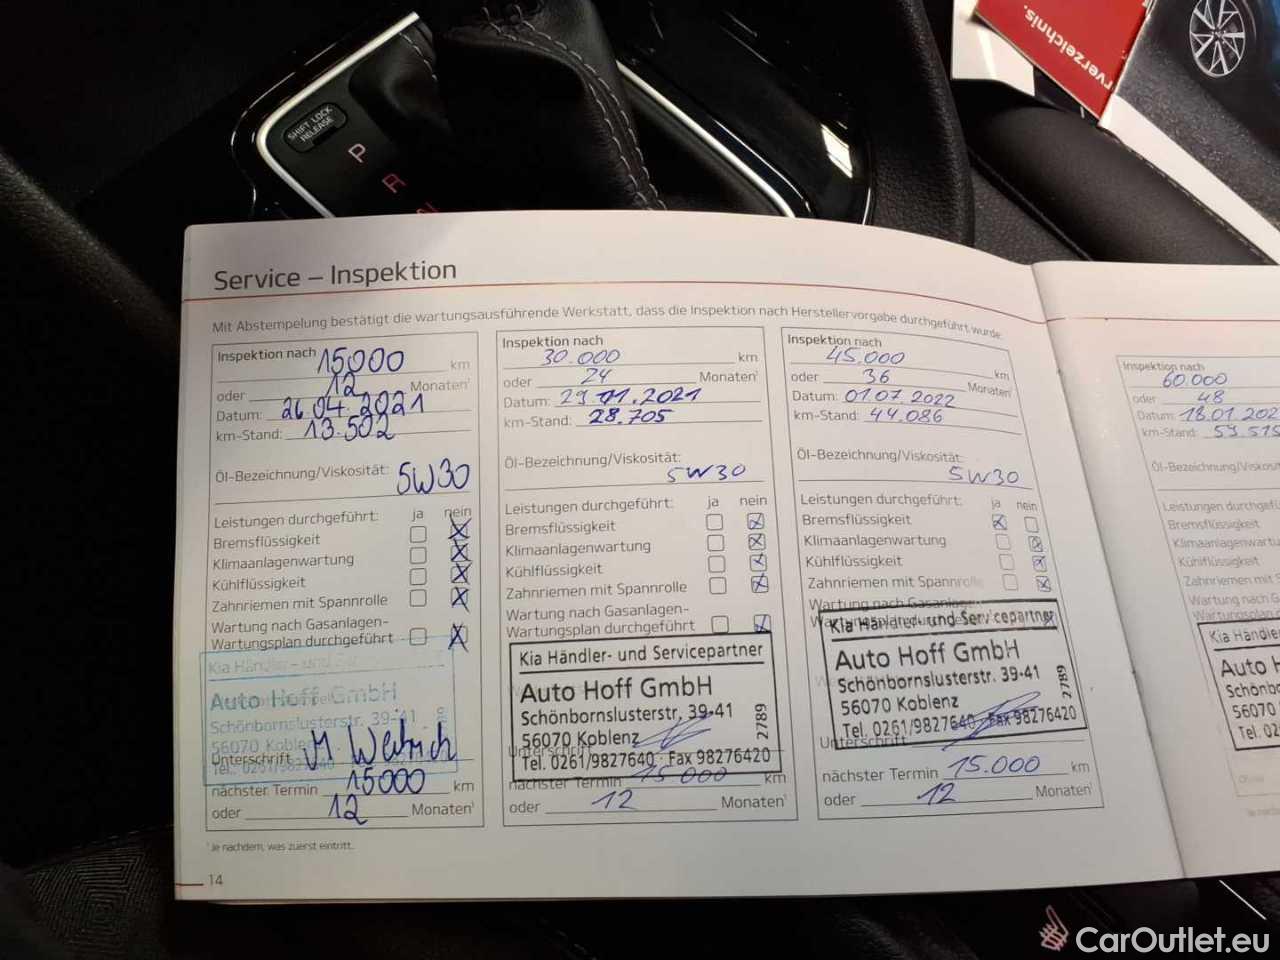 rverzeichnis.
SHIFT LOCK
RELEASE
P
R
N
Service – Inspektion
Mit Abstempelung bestätigt die wartungsausführende Werkstatt, dass die Inspektion nach Herstellervorgabe durchgeführt wurde.
Inspektion nach 15000 km
oder 12 Monaten¹
Datum: 26.04.2021
km-Stand: 13.502
Öl-Bezeichnung/Viskosität: 5W30
Leistungen durchgeführt: ja nein
Bremsflüssigkeit
Klimaanlagenwartung
Kühlflüssigkeit
Zahnriemen mit Spannrolle
Wartung nach Gasanlagen-
Wartungsplan durchgeführt
Kia Händler- und
Auto Hoff GmbH
Schönbornslusterstr. 39-41
56070 Koblenz
Tel. 0261/9827640
Unterschrift
nächster Termin 15000 km
oder 12 Monaten¹
Inspektion nach
30.000 km
oder 24 Monaten¹
Datum: 29.11.2021
km-Stand: 28.705
Öl-Bezeichnung/Viskosität:
5W30
Leistungen durchgeführt: ja nein
Bremsflüssigkeit
Klimaanlagenwartung
Kühlflüssigkeit
Zahnriemen mit Spannrolle
Wartung nach Gasanlagen-
Wartungsplan durchgeführt
Kia Händler- und Servicepartner
Auto Hoff GmbH
Schönbornslusterstr. 39-41
56070 Koblenz
Tel. 0261/9827640 · Fax 98276420
2789
Unterschrift
nächster Termin 15000 km
oder 12 Monaten¹
Inspektion nach
45.000 km
oder 36 Monaten¹
Datum: 01.07.2022
km-Stand: 44.086
Öl-Bezeichnung/Viskosität:
5W30
Leistungen durchgeführt: ja nein
Bremsflüssigkeit
Klimaanlagenwartung
Kühlflüssigkeit
Zahnriemen mit Spannrolle
Wartung nach Gasanlagen-
Kia Händler- und Servicepartner
Auto Hoff GmbH
Schönbornslusterstr. 39-41
56070 Koblenz
Tel. 0261/9827640 · Fax 98276420
2789
Unterschrift
nächster Termin 15.000 km
oder 12 Monaten¹
¹ Je nachdem, was zuerst eintritt.
14
Inspektion nach
60.000
oder 48
Datum: 18.01.202
km-Stand: 59.515
Öl-Bezeichnung/Viskosi
Leistungen durchgefüh
Bremsflüssigkeit
Klimaanlagenwartu
Kühlflüssigkeit
Zahnriemen mit S
Wartung nach G
Wartungsplan
Kia Händler
Auto H
Schönbo
56070
Tel. 02
CarOutlet.eu